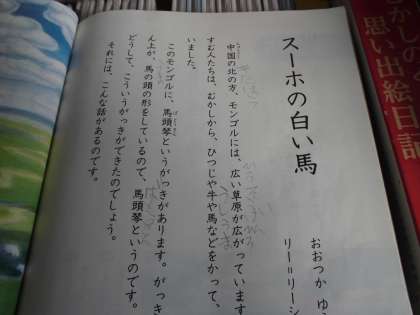 スーホの白い馬
おおつか ゆ
リー=リーシ
中国の北の方、モンゴルには、広い草原が広がっています
すむ人たちは、むかしから、ひつじや牛や馬などをかって、
いました。
このモンゴルに、馬頭琴というがっきがあります。がっき
ん上が、馬の頭の形をしているので、馬頭琴というのです。
どうして、こういうがっきができたのでしょう。
それには、こんな話があるのです。
むかしの
思い出絵日記